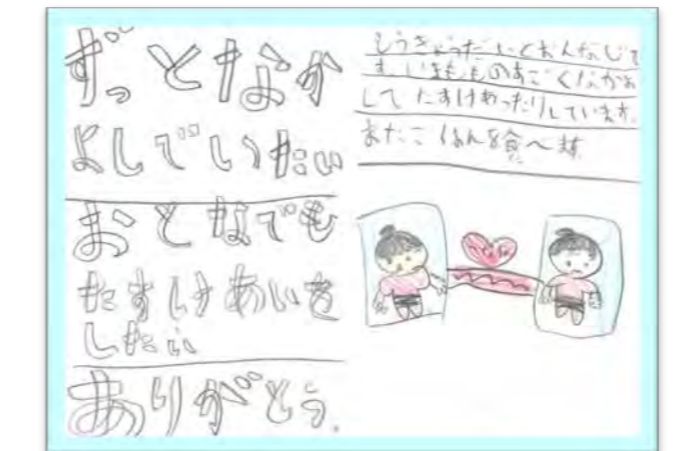 ずっとなか
よしでいたい
おとなでも
たすけあいを
したい
ありがとう。
もうきょうだいとおんなじで
す。いまもものすごくなかよ
して たすけあったりしています。
またごはんを食べます